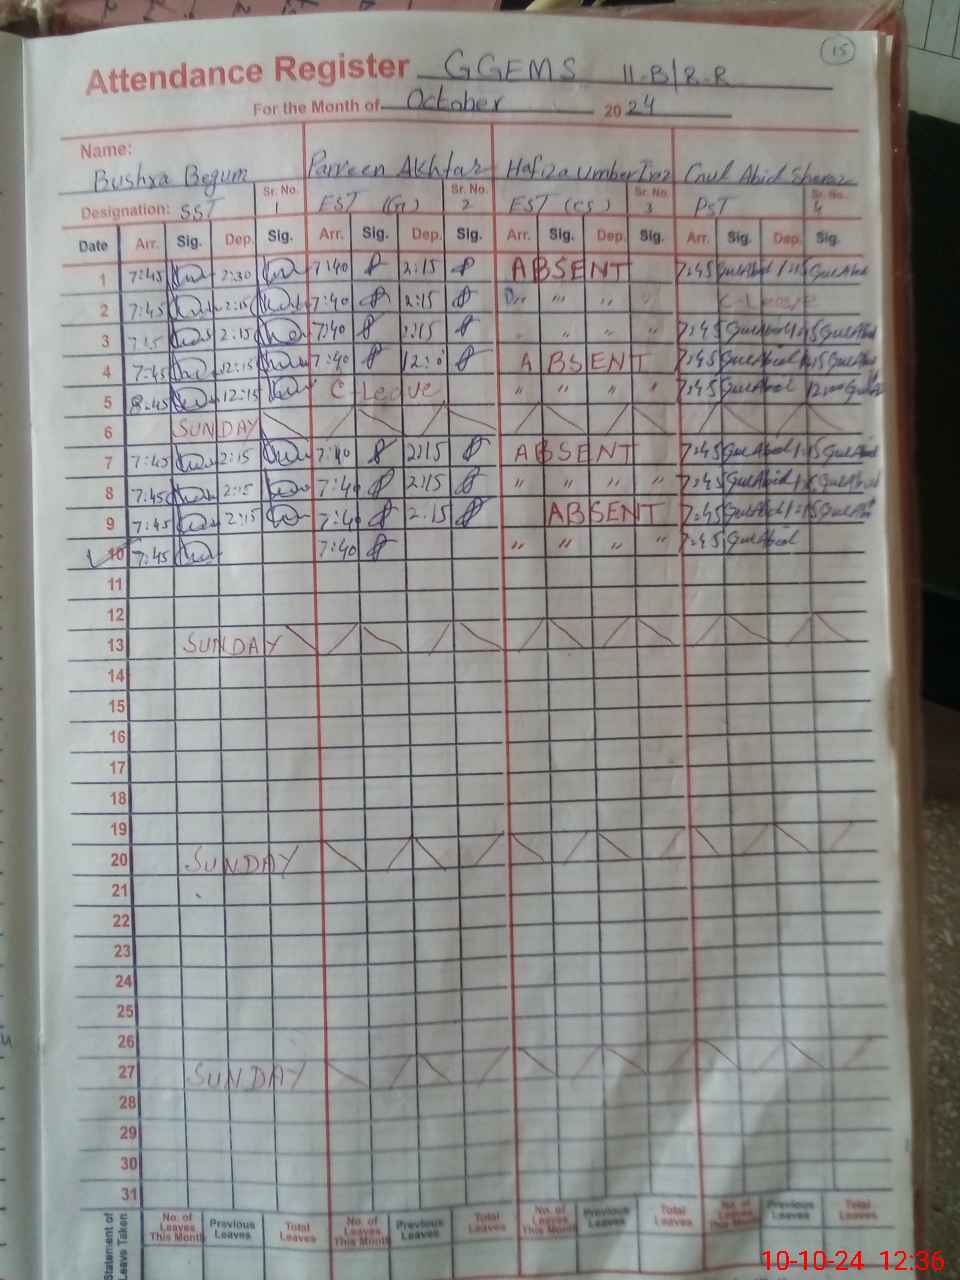 15
Attendance Register GGEMS 11-B/R.R
For the Month of October 2024
Name:
Bushra Begum Parveen Akhtar Hafiza Umber Gul Abid
Designation: SST Sr. No. 1 EST (G) Sr. No. 2 EST (CS) Sr. No. 3 PST Sr. No. 4
Date Arr. Sig. Dep. Sig. Arr. Sig. Dep. Sig. Arr. Sig. Dep. Sig. Arr. Sig. Dep. Sig.
1 7:45 2:30 7:40 2:15 ABSENT 7:45 Gul Abid Gul Abid
2 7:45 2:15 7:40 2:15 " " " C-Leave
3 2:15 7:40 2:15 " " " " 7:45 Gul Abid Gul Abid
4 7:45 12:15 7:40 ABSENT 7:45 Gul Abid Gul Abid
5 8:45 12:15 C-Leave " " " " 7:45 Gul Abid 12:00
6 SUNDAY
7 7:45 2:15 7:40 2:15 ABSENT 7:45 Gul Abid Gul Abid
8 7:45 2:15 7:40 2:15 " " " " 7:45 Gul Abid Gul Abid
9 7:45 2:15 7:40 2:15 ABSENT 7:45 Gul Abid Gul Abid
10 7:45 7:40 " " " " 7:45 Gul Abid
11
12
13 SUNDAY
14
15
16
17
18
19
20 SUNDAY
21
22
23
24
25
26
27 SUNDAY
28
29
30
31
Statement of Leave Taken No. of Leaves This Month Previous Leaves Total Leaves No. of Leaves This Month Previous Leaves Total Leaves No. of Leaves This Month Previous Leaves Total Leaves No. of Leaves This Month Previous Leaves Total Leaves
10-10-24 12:36